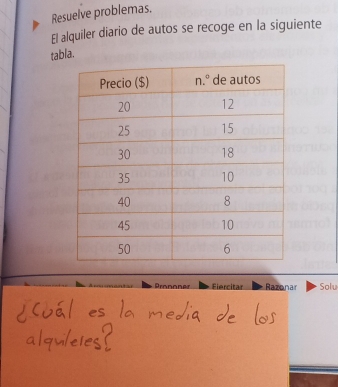 Resuelve problemas.
El alquiler diario de autos se recoge en la siguiente
tabla.
Precio ($) n.° de autos
20 12
25 15
30 18
35 10
40 8
45 10
50 6
Proponer Ejercitar Razonar Solu
¿Cuál es la media de los
alquileles?